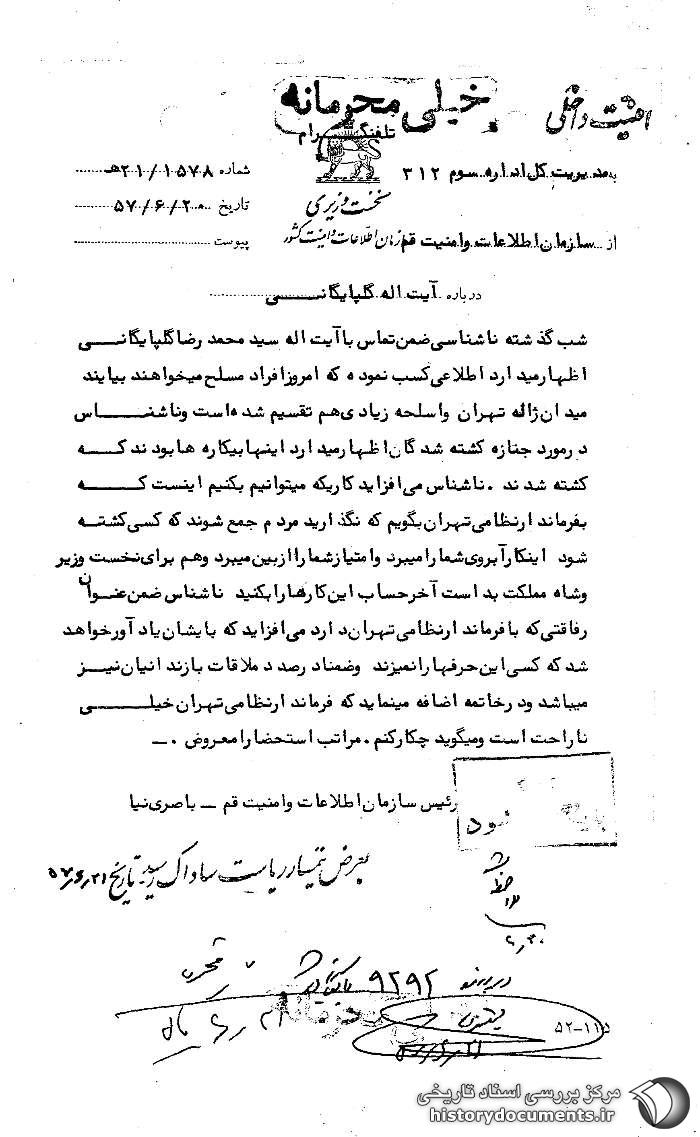 خیلی محرمانه
امنیت داخلی
تلفنگرام
به مدیریت کل اداره سوم ۳۱۲
شماره ۲۱/۱۵۷۸هـ
نخست وزیری
تاریخ ۵۷/۶/۲۰
سازمان اطلاعات و امنیت کشور
از سازمان اطلاعات و امنیت قم
پیوست
درباره آیت اله گلپایگانی
شب گذشته ناشناسی ضمن تماس با آیت اله سید محمد رضا گلپایگانی
اظهار میدارد اطلاعی کسب نموده که امروز افراد مسلح میخواهند بیایند
میدان ژاله تهران و اسلحه زیادی هم تقسیم شده است و ناشناس
در مورد جنازه کشته شدگان اظهار میدارد اینها بیکاره ها بودند که
کشته شدند . ناشناس می افزاید کاریکه میتوانیم بکنیم اینست که
بفرماندار نظامی تهران بگویم که نگذارید مردم جمع شوند که کسی کشته
شود اینکار آبروی شما را میبرد و امتیاز شما را از بین میبرد و هم برای نخست وزیر
و شاه مملکت بد است آخر حساب این کارها را بکنید ناشناس ضمن عنوان
رفاقتی که با فرماندار نظامی تهران دارد می افزاید که بایشان یادآور خواهد
شد که کسی این حرفها را نمیزند و ضمنا درصدد ملاقات بازندانیان نیز
میباشد و در خاتمه اضافه مینماید که فرماندار نظامی تهران خیلی
ناراحت است و میگوید چکار کنم . مراتب استحضارا معروض . ــ
رئیس سازمان اطلاعات و امنیت قم ــ باصری نیا
بعرض تیمسار ریاست ساواک رسید تاریخ ۵۷/۶/۲۱
در پرونده ۹۲۹۲ بایگانی شود
۵۲-۱۱۵
مرکز بررسی اسناد تاریخی
historydocuments.ir